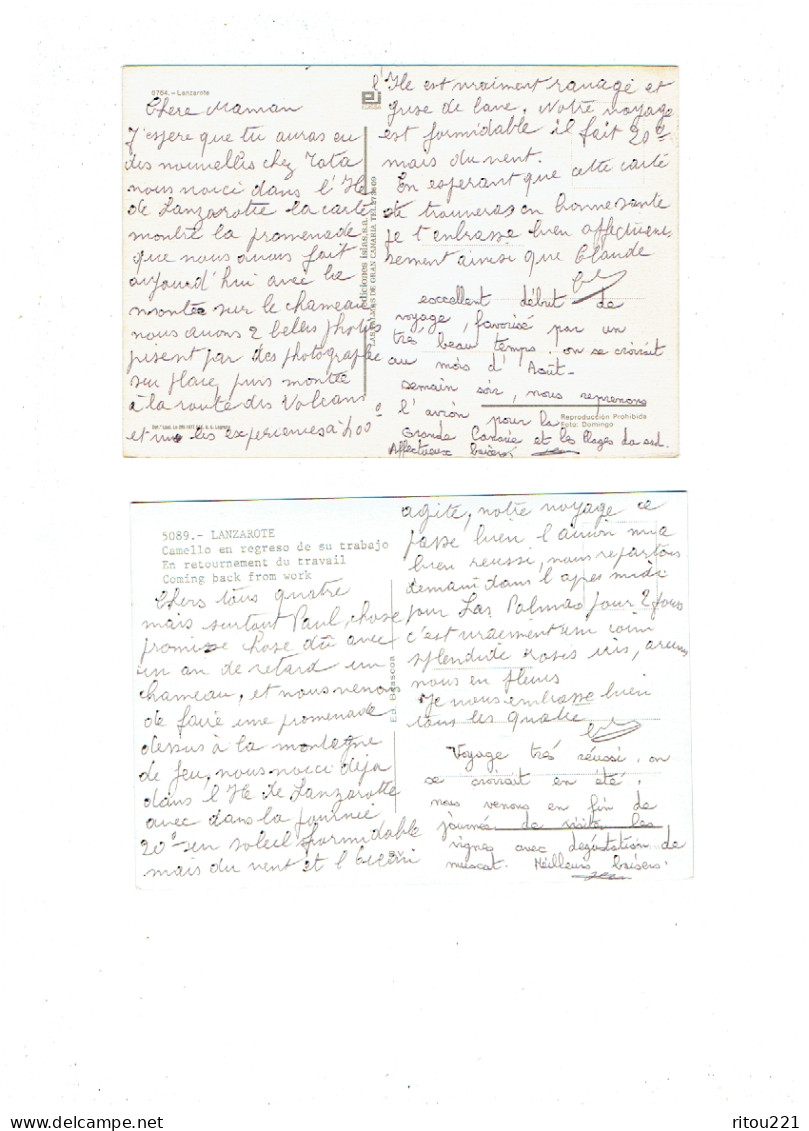 6704.- Lanzarote
Chere Maman
J'espere que tu auras eu
des nouvelles chez Tata
nous voici dans l'Ile
de Lanzarotte la carte
montre la promenade
que nous avons fait
aujourd'hui avec la
montée sur le chameau
nous avons 2 belles photos
par des photographe
sur place, puis montée
à la route des Volcans
et vu les experiences à 400°
ediciones islas, s.a.
LAS PALMAS DE GRAN CANARIA
l'Ile est vraiment ravagé et
grise de lave. Notre voyage
est formidable il fait 20°
mais du vent.
En esperant que cette carte
te trouveras en bonne sante
je t'enbrasse bien affectueu-
sement ainsi que Claude
excellent début de
voyage, favorisé par un
très beau temps. on se croirait
au mois d'Août-
demain soir, nous reprenons
l'avion pour la
Grande Canarie et les Plages du sud.
Affectueux baisers
Reproducción Prohibida
Foto: Domingo
5089.- LANZAROTE
Camello en regreso de su trabajo
En retournement du travail
Coming back from work
Chers tous quatre
mais surtout Paul, chose
promise chose dû avec
un an de retard un
chameau, et nous venons
de faire une promenade
dessus à la montagne
de feu, nous voici déja
dans l'Ile de Lanzarotte
avec dans la journée
20° un soleil formidable
mais du vent et l'
Ed.
agité, notre voyage ce
passe bien l'avion m'a
bien reussi, nous repartons
demain dans l'apres midi
pour Las Palmas pour 2 jours
c'est vraiment un coin
splendide roses iris, arums
nous en fleurs
Je vous embrasse bien
tous les quatre
Voyage très réussi. on
se croirait en été.
nous venons en fin de
journée de visiter les
vignes avec dégustation de
muscat. Meilleurs baisers.
delcampe.net
ritou221